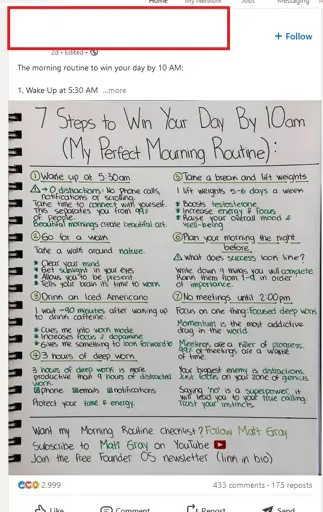 Home My Network Jobs Messaging
+ Follow
2d • Edited •
The morning routine to win your day by 10 AM:
1. Wake Up at 5:30 AM ...more
7 Steps to Win Your Day By 10am
(My Perfect Mourning Routine):
① Wake up at 5:30am
⚠ → 0 distractions: No phone calls,
notifications or scrolling.
Take time to connect with yourself.
This separates you from 99%
of people.
Beautiful mornings create beautiful art.
② Go for a walk
Take a walk around nature.
* Clear your mind.
* Get sunlight in your eyes
* Allows you to be present.
* Tells your brain it's time to work
③ Drink an Iced Americano
I wait ~90 minutes after waking up
to drink caffeine.
* Cues me into work mode
* Increases focus & dopamine
* Gives me something to look forward to
④ 3 hours of deep work
3 hours of deep work is more
productive than 9 hours of distracted
work.
phone emails notifications
Protect your time & energy.
⑤ Take a break and lift weights
I lift weights 5-6 days a week
* Boosts testosterone
* Increase energy & focus
* Raise your overall mood &
well-being
⑥ Plan your morning the night
before
⚠ What does success look like?
Write down 9 things you will complete
Rank them from 1-9 in order
of importance.
⑦ No meetings until 2:00pm
Focus on one thing: Focused deep work
Momentum is the most addictive
drug in the world.
Meetings are a killer of progress.
99% of meetings are a waste
of time.
Your biggest enemy is distractions.
Just focus on your zone of genius.
Saying "no" is a superpower, it
will lead you to your true calling.
Trust your instincts.
Want my Morning Routine Checklist? Follow Matt Gray
Subscribe to Matt Gray on YouTube
Join the free Founder OS newsletter (link in bio)
2,999 433 comments • 175 reposts
Like Comment Repost Send